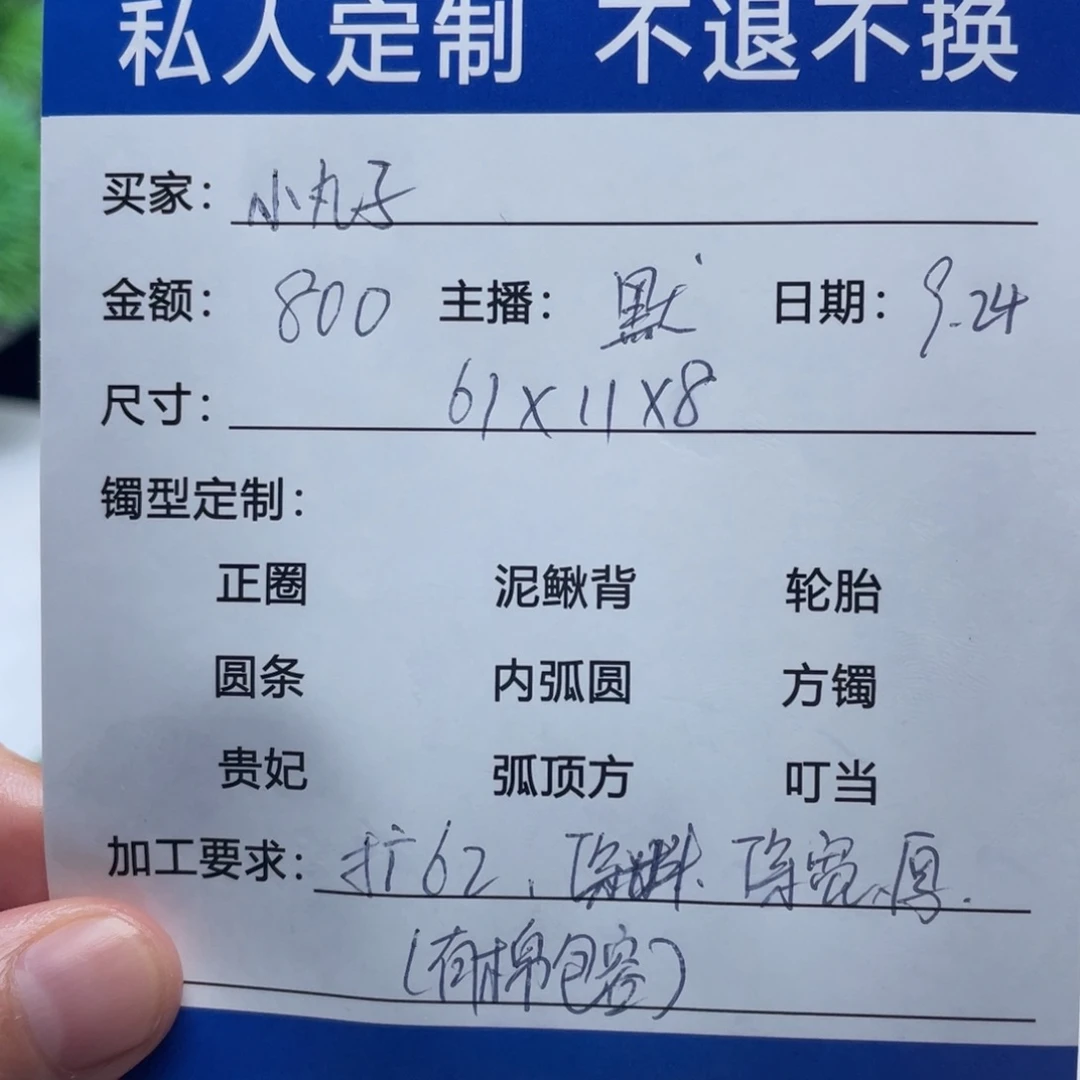 私人定制 不退不换
买家：小丸子
金额：800 主播：默 日期：9.24
尺寸：61x11x8
镯型定制：
正圈 泥鳅背 轮胎
圆条 内弧圆 方镯
贵妃 弧顶方 叮当
加工要求：扩62、 降宽、厚.
(有棉包容)